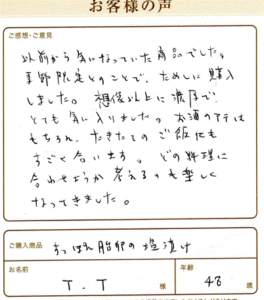 お客様の声
ご感想・ご意見
以前から気になっていた商品でした。
季節限定とのことで、ためしに購入
しました。想像以上に濃厚で
とても気に入りました。お酒のアテは
もちろん、たきたてのご飯にも
すごく合います。どの料理に
合わせようか考えるのも楽しく
なってきました。
ご購入商品 すっぽん胎卵の塩漬け
お名前 T.T 様 年齢 48 歳